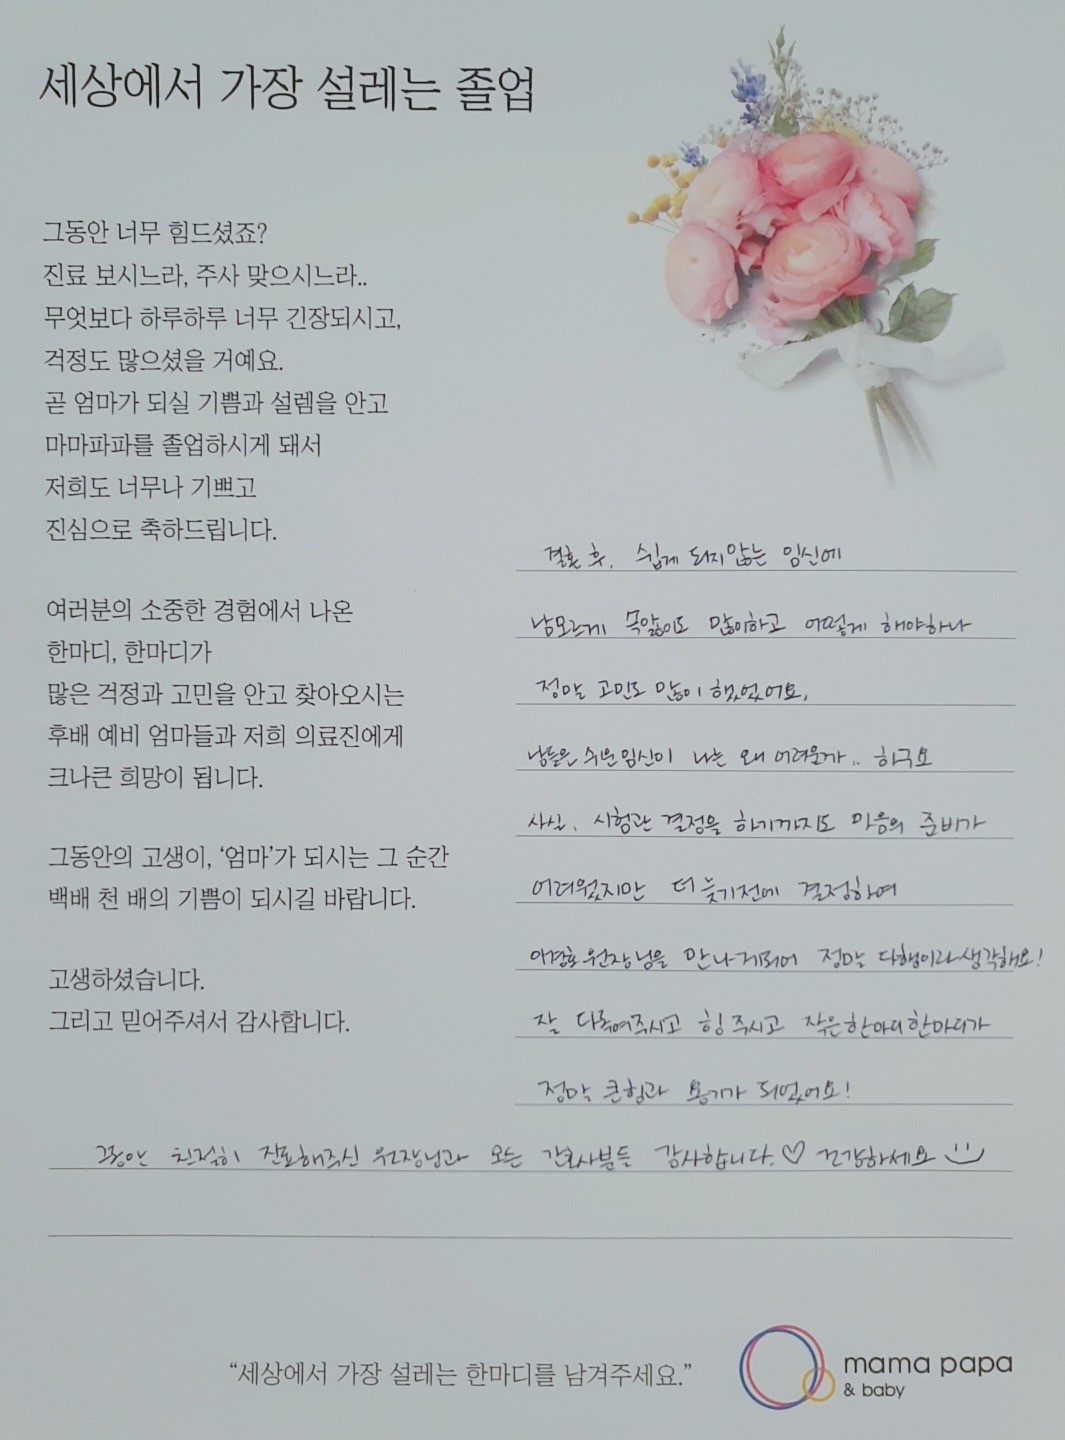 세상에서 가장 설레는 졸업
그동안 너무 힘드셨죠?
진료 보시느라, 주사 맞으시느라..
무엇보다 하루하루 너무 긴장되시고,
걱정도 많으셨을 거예요.
곧 엄마가 되실 기쁨과 설렘을 안고
마마파파를 졸업하시게 돼서
저희도 너무나 기쁘고
진심으로 축하드립니다.
여러분의 소중한 경험에서 나온
한마디, 한마디가
많은 걱정과 고민을 안고 찾아오시는
후배 예비 엄마들과 저희 의료진에게
크나큰 희망이 됩니다.
그동안의 고생이, ‘엄마’가 되시는 그 순간
백배 천 배의 기쁨이 되시길 바랍니다.
고생하셨습니다.
그리고 믿어주셔서 감사합니다.
결혼 후, 쉽게 되지않는 임신에
남모르게 속앓이도 많이하고 어떻게 해야하나
정말 고민도 많이 했었어요,
남들은 쉬운임신이 나는 왜 어려울까.. 하구요
사실, 시험관 결정을 하기까지도 마음의 준비가
어려웠지만 더 늦기전에 결정하여
원장님을 만나게되어 정말 다행이라생각해요!
잘 다독여주시고 힘주시고 작은한마디한마디가
정말 큰힘과 용기가 되었어요!
그동안 친절히 진료해주신 원장님과 모든 간호사분들 감사합니다.♡ 건강하세요
“세상에서 가장 설레는 한마디를 남겨주세요.”
mama papa
& baby